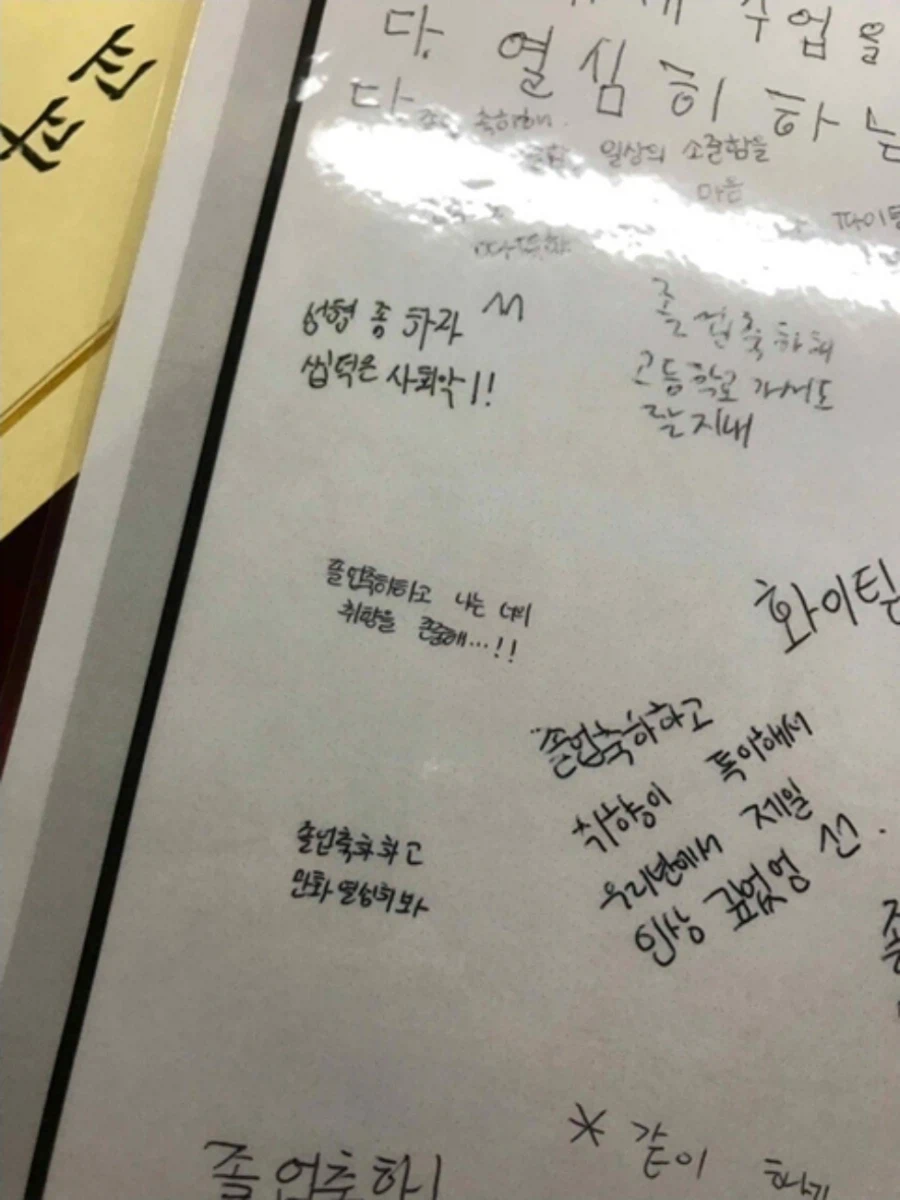 수업을
다. 열심히 하는
다
축하해.
일상의 소중함을
마음
성형 좀 하자
씹덕은 사회악!!
졸업축하해
고등학교 가서도
잘지내
졸업축하하고 나는 너의
취향을 존중해...!!
화이팅
졸업축하하고
취향이 독아해서
우리반에서 제일
인상 깊었엉
졸업축하하고
만화열심히봐
졸업축하
* 같이 하기